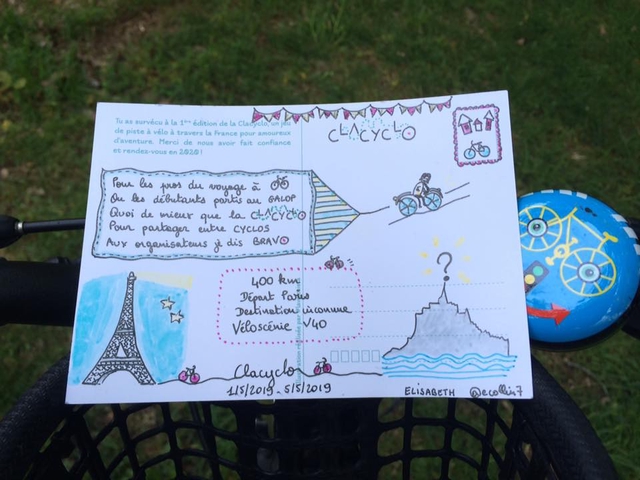 Tu as survécu à la 1ère édition de la Clacyclo, un jeu
de piste à vélo à travers la France pour amoureux
d'aventure. Merci de nous avoir fait confiance
et rendez-vous en 2020 !
CLACYCLO
Pour les pros du voyage à
Ou les débutants partis au GALOP
Quoi de mieux que la CLACYCLO
Pour partager entre CYCLOS
Aux organisateurs je dis BRAVO
?
400 km
Départ Paris
Destination inconnue
Véloscénie V40
Clacyclo
1/5/2019 - 5/5/2019
ELISABETH @ecollin7